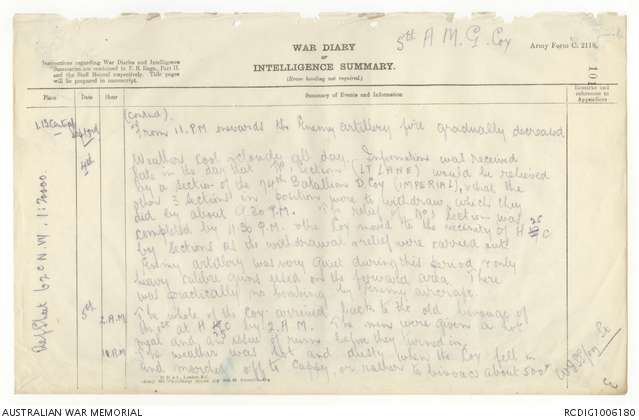 5th A M. G. Coy
WAR DIARY
or
INTELLIGENCE SUMMARY.
(Erase heading not required.)
Army Form C. 2118.
Instructions regarding War Diaries and Intelligence
Summaries are contained in F. S. Regs., Part II.
and the Staff Manual respectively. Title pages
will be prepared in manuscript.
101
Place
Date
Hour
Summary of Events and Information
Remarks and
references to
Appendices
(Contd).
From 11. P.M onwards the Enemy artillery fire gradually decreased
4th
Weather cool & cloudy all day. Information was received
late in the day that section (LT LANE) would be relieved
by a section of the 74th Battalion D. Coy (IMPERIAL), that the
other 3 sections in position were to withdraw, which they
did by about 9.30 P.M. relief of section was
completed by 11.30 P.M. The Coy moved to the vicinity of H C
by sections as the withdrawal & relief were carried out
Enemy artillery was very quiet during this period & only
heavy calibre guns used on the forward area. There
was practically no bombing by Enemy aircraft.
5th
2 A.M.
The whole of the Coy arrived back to the old bivouac of
the at H C by 2 A.M. The men were given a hot
meal and an issue of rum before they turned in.
The weather was hot and dusty when the Coy fell in
and marched off to Cappy or rather to bivouacs about 500x
Ref Sheet 62c N.W. 1:20000.
AUSTRALIAN WAR MEMORIAL
RCDIG1006180